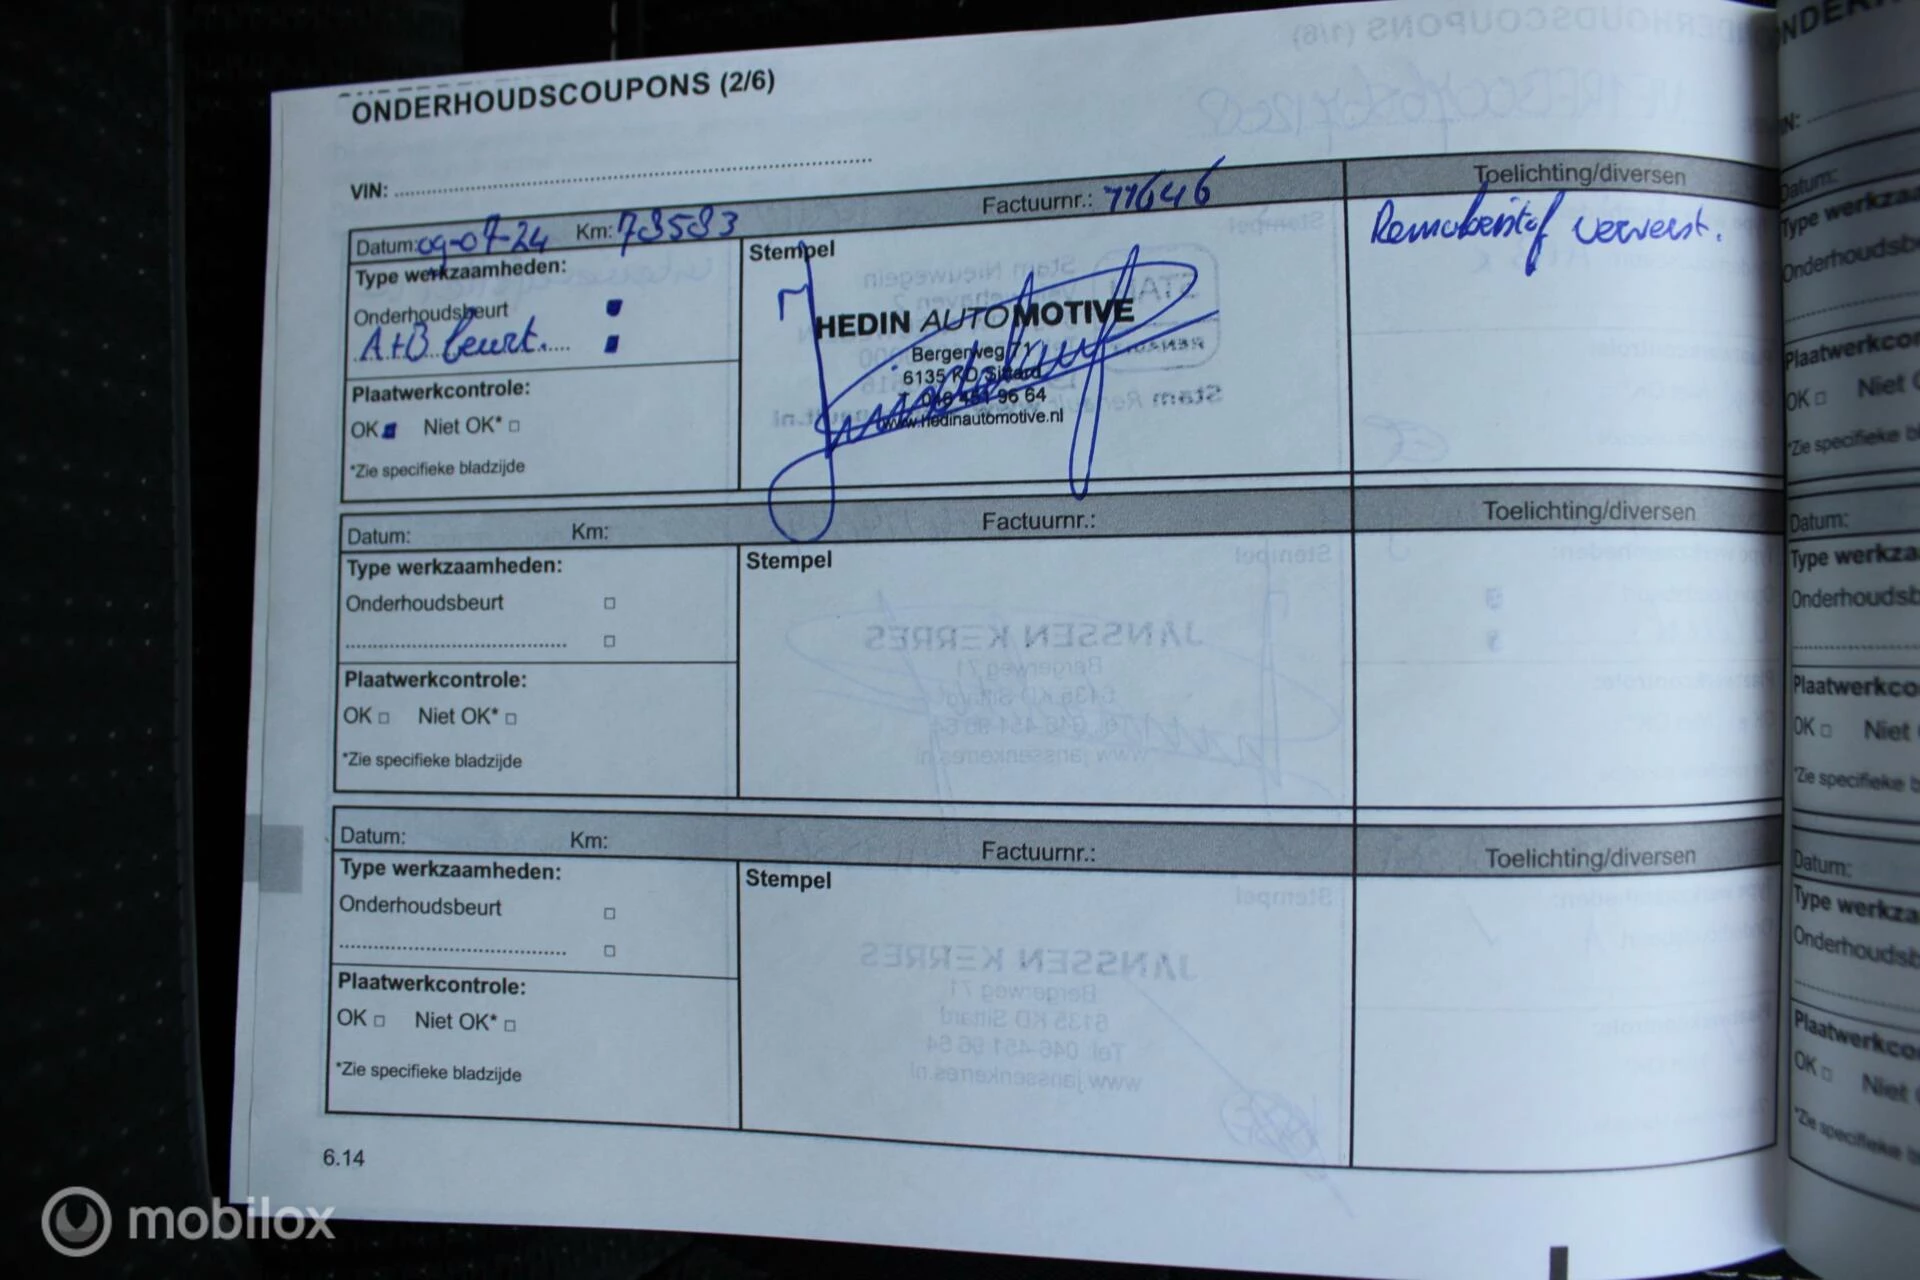 ONDERHOUDSCOUPONS (2/6)
VIN:
Datum: 09-07-24 Km: 78583 Factuurnr.: 71646 Toelichting/diversen
Type werkzaamheden:
Onderhoudsbeurt
A+B beurt.
Stempel
HEDIN AUTOMOTIVE
Bergerweg 71
6135 KD Sittard
T. 046 451 96 64
www.hedinautomotive.nl
Remvloeistof ververst.
Plaatwerkcontrole:
OK Niet OK*
*Zie specifieke bladzijde
Datum: Km: Factuurnr.: Toelichting/diversen
Type werkzaamheden:
Onderhoudsbeurt
Stempel
Plaatwerkcontrole:
OK Niet OK*
*Zie specifieke bladzijde
Datum: Km: Factuurnr.: Toelichting/diversen
Type werkzaamheden:
Onderhoudsbeurt
Stempel
Plaatwerkcontrole:
OK Niet OK*
*Zie specifieke bladzijde
6.14
mobilox